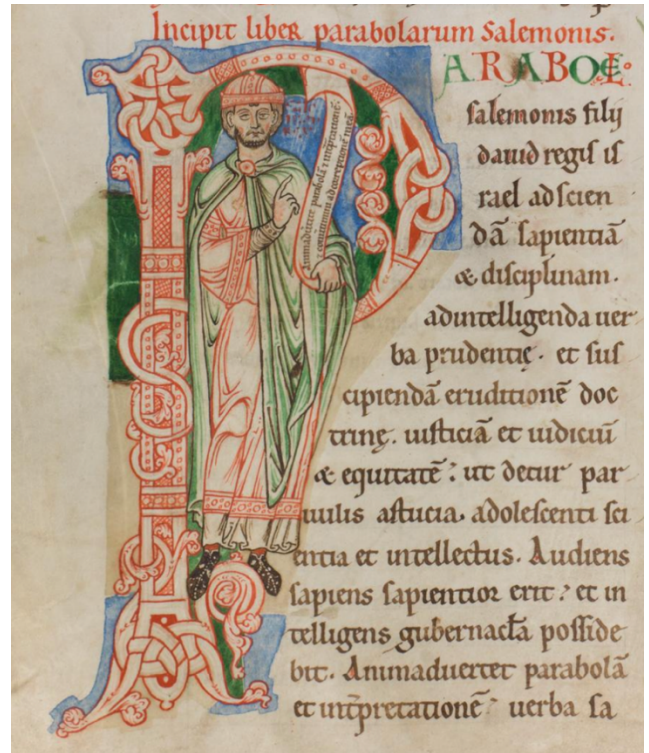 Incipit liber parabolarum Salemonis.
PARABOLĘ
salemonis filij
dauid regis is
rael ad scien
dā sapientiā
& disciplinam.
ad intelligenda uer
ba prudentię. et sus
cipiendā eruditionē doc
trinę. iusticiā et iudiciū
& equitatē: ut detur par
uulis astucia. adolescenti sci
entia et intellectus. Audiens
sapiens sapientior erit: et in
telligens gubernacła posside
bit. Animaduertet parabolā
et int̄pretationē: uerba sa